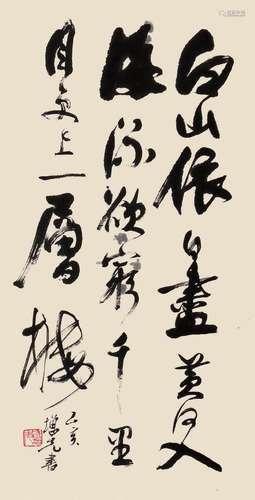 白山依日盡黃河入
海流欲窮千里
目更上一層樓
乙亥
增先書